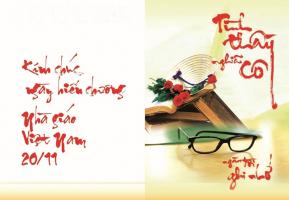 Kính chúc
ngày hiến chương
Nhà giáo
Việt Nam
20/11
Tình
thầy
nghĩa
cô
ngàn đời
ghi nhớ